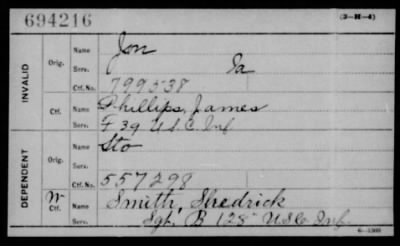 694216
(3-H-4)
INVALID
Orig.
Name Jon
Serv. Ia
Ctf. No. 799538
Ctf.
Name Phillips, James
Serv. F 39 U.S.C. Inf
DEPENDENT
Orig.
Name Sto
Serv.
Ctf. No. 557298
W Ctf.
Name Smith, Shedrick
Serv. Sgt. B 128" US Co Inf.